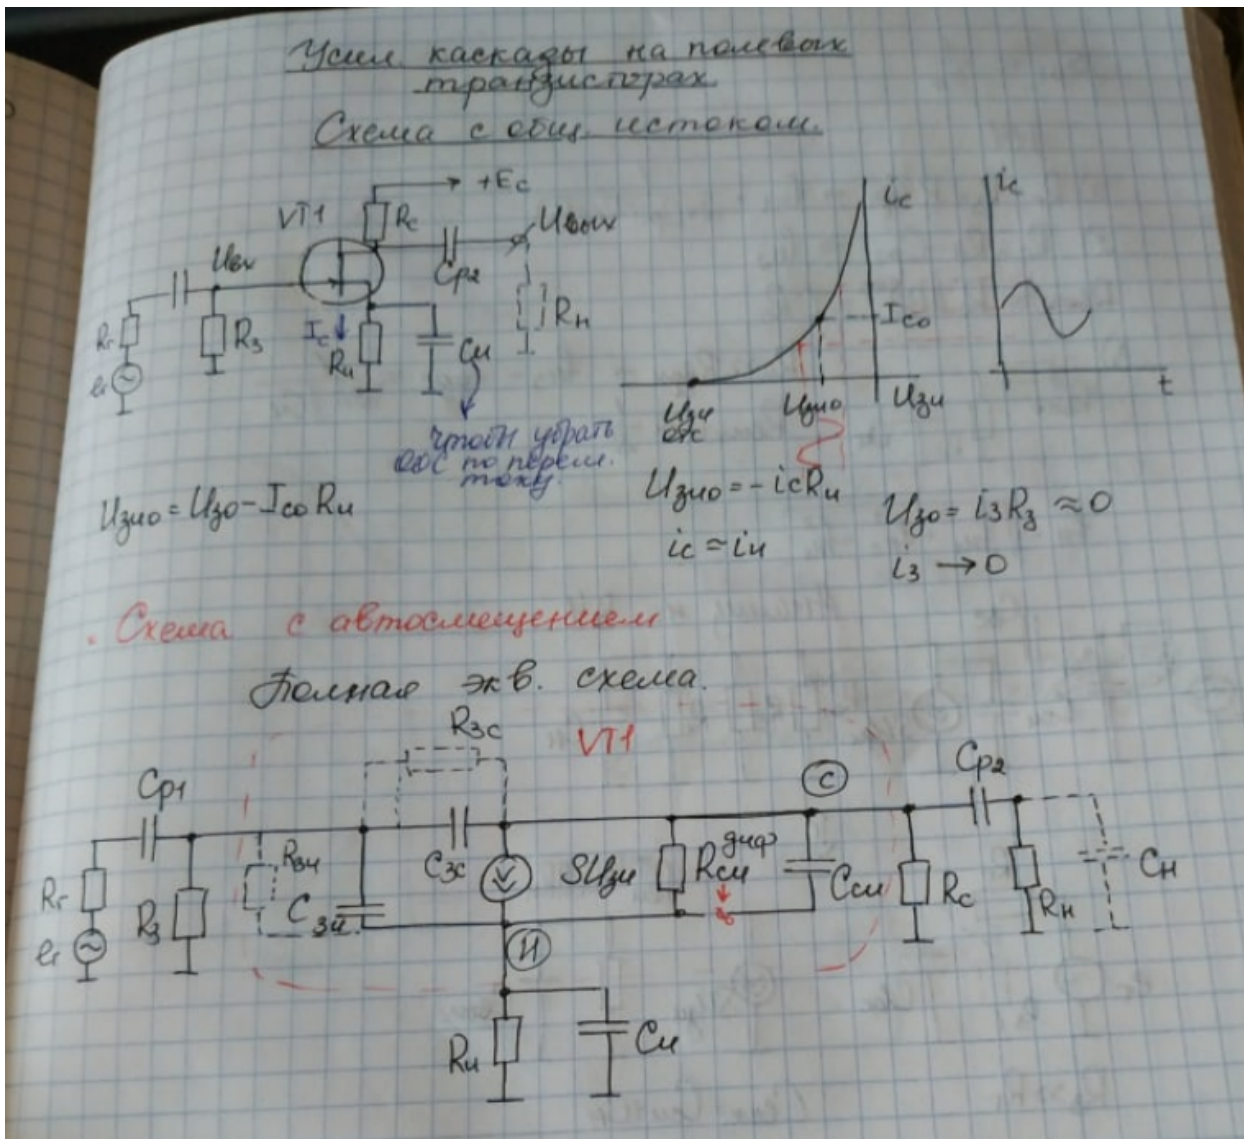 Усил каскады на полевых
транзисторах
Схема с общ. истоком.
+Ec
VT1
Rc
Uвых
Uвх
Cp2
Rг
Rз
Ic
Rи
Cи
Rн
eг
чтобы убрать
ООС по перем.
току
ic
Ico
Uзи
отс
Uзио
Uзи
ic
t
Uзио = Uзо - Ico Rи
Uзио = - ic Rи
ic ≈ iи
Uзо = iз Rз ≈ 0
iз → 0
Схема с автосмещением
Полная экв. схема.
Rзс
VT1
C
Cp1
Cp2
Rзи
Cзс
SUзи
Rси диф
Cси
Rc
Rн
Cн
Rг
Rз
Cзи
eг
И
Rи
Cи